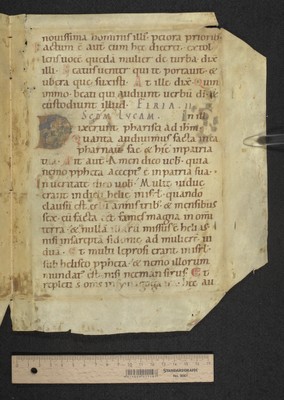 nouissima hominis illi' peiora priorib'
factum ē aut cum hec diceret. extol
lens uocē quedā mulier de turba dix
illi. Beatus uenter qui te portauit. &
ubera que suxisti. At ille dix
immo beati qui audiunt uerbū dī &
custodiunt illud. FERIA. II.
SCDM LVCAM. In ill
dixerunt pharisei ad ihm
Quanta audiuimus facta in ca
pharnaū fac & hic in patria
tua. Ait aut. Amen dico uob. quia
nemo ppheta accept' ē in patria sua.
In ueritate dico uob. Multe uidue
erant in dieb' helie in isrl. quando
clausū est celū annis trib' & mensibus
sex. cū facta eēt fames magna in omi
terra. & ad nullā illarū missus ē helias
nisi in sarepta sidonie. ad mulierē ui
duā. Et multi leprosi erant in isrl.
sub heliseo ppheta. & nemo illorum
mundat' est nisi neeman sirus. Et
repleti s omis in synagoga ira. hec au